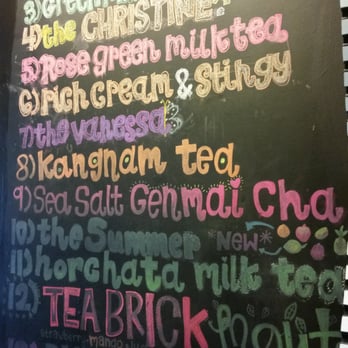 3)
4) the CHRISTINE
5) Rose green milk tea
6) rich cream & Stingy
7) the vanessa
8) Kangnam tea
9) Sea Salt Genmai Cha
10) the Summer *New*
11) horchata milk tea
12) TEA BRICK
strawberry-mango